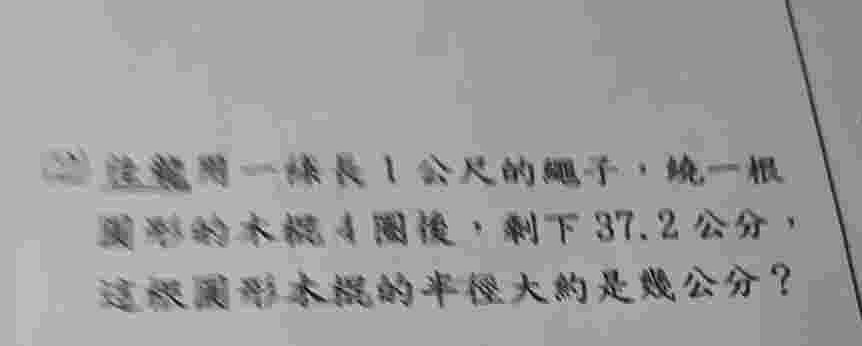 用一條長1公尺的繩子，繞一根
圓形的木棍4圈後，剩下37.2公分，
這根圓形木棍的半徑大約是幾公分？